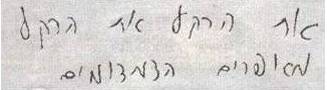 את הרקע את הרקע
מאפרים הדמדומים